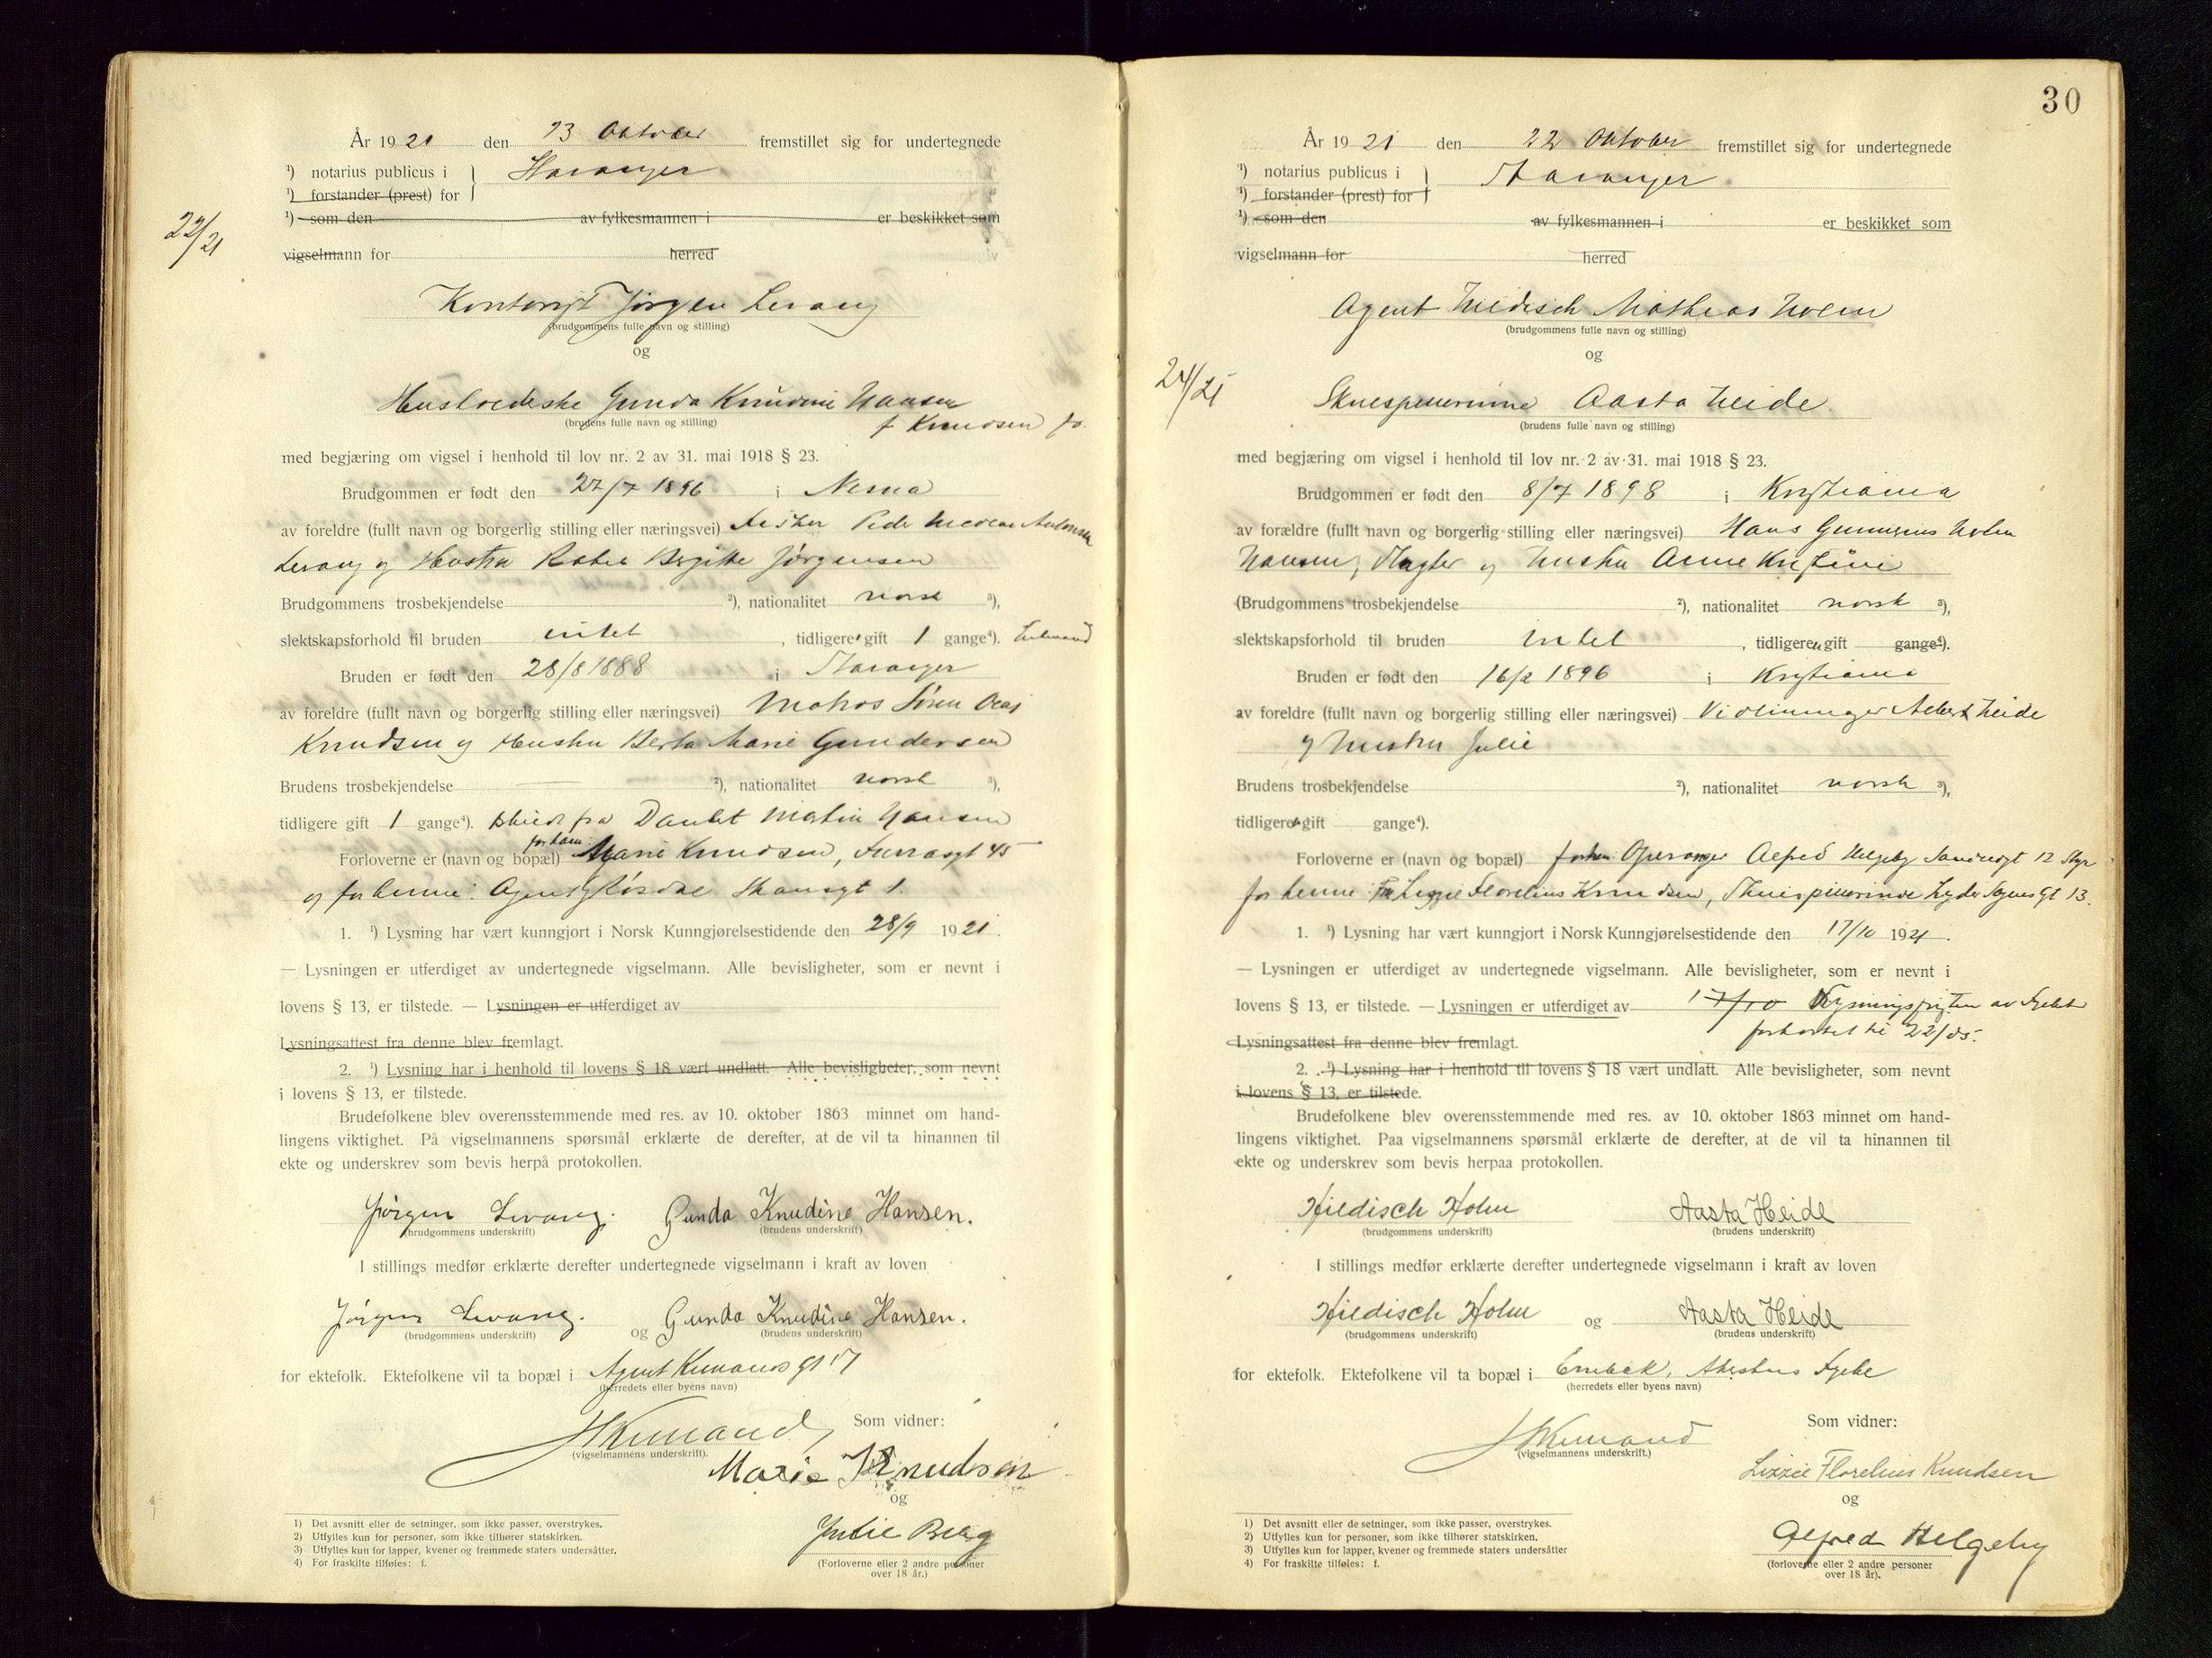 År 1921 den 13 Oktober fremstillet sig for undertegnede
¹) notarius publicus i } Stavanger
¹) forstander (prest) for
¹) som den av fylkesmannen i er beskikket som
22/21
vigselmann for herred
Kontorist Jörgen Levang
(brudgommens fulle navn og stilling)
og
Gunda Knudine Hansen
f Knudsen
(brudens fulle navn og stilling)
med begjæring om vigsel i henhold til lov nr. 2 av 31. mai 1918 § 23.
Brudgommen er født den 27/7 1896 i
av foreldre (fullt navn og borgerlig stilling eller næringsvei) Fisker Peder
Levang og Hustru Bergitte Jörgensen
Brudgommens trosbekjendelse ²), nationalitet norsk ³),
slektskapsforhold til bruden intet , tidligere gift 1 gange⁴).
Bruden er født den 28/8 1888 i Stavanger
av foreldre (fullt navn og borgerlig stilling eller næringsvei) Matros Sören
Knudsen og Hustru Berta Marie Gundersen
Brudens trosbekjendelse ²), nationalitet norsk ³),
tidligere gift 1 gange⁴). skilt fra Martin Hansen
Forloverne er (navn og bopæl) for ham Marie Knudsen, 45
og for henne: 1.
1. ¹) Lysning har vært kunngjort i Norsk Kunngjørelsestidende den 28/9 1921.
— Lysningen er utferdiget av undertegnede vigselmann. Alle bevisligheter, som er nevnt i
lovens § 13, er tilstede. — Lysningen er utferdiget av
Lysningsattest fra denne blev fremlagt.
2. ¹) Lysning har i henhold til lovens § 18 vært undlatt. Alle bevisligheter, som nevnt
i lovens § 13, er tilstede.
Brudefolkene blev overensstemmende med res. av 10. oktober 1863 minnet om hand-
lingens viktighet. På vigselmannens spørsmål erklærte de derefter, at de vil ta hinannen til
ekte og underskrev som bevis herpå protokollen.
Jörgen Levang. Gunda Knudine Hansen.
(brudgommens underskrift) (brudens underskrift)
I stillings medfør erklærte derefter undertegnede vigselmann i kraft av loven
Jörgen Levang. og Gunda Knudine Hansen.
(brudgommens underskrift) (brudens underskrift)
for ektefolk. Ektefolkene vil ta bopæl i 17
(herredets eller byens navn)
Som vidner:
(vigselmannens underskrift).
Marie Knudsen
og
Julie Berg
(Forloverne eller 2 andre personer
over 18 år.)
1) Det avsnitt eller de setninger, som ikke passer, overstrykes.
2) Utfylles kun for personer, som ikke tilhører statskirken.
3) Utfylles kun for lapper, kvener og fremmede staters undersåtter.
4) For fraskilte tilføies: f.
30
År 1921 den 22 Oktober fremstillet sig for undertegnede
¹) notarius publicus i } Stavanger
¹) forstander (prest) for
¹) som den av fylkesmannen i er beskikket som
vigselmann for herred
Agent Hildisch Mathias Holm
(brudgommens fulle navn og stilling)
og
24/21
Skuespillerinne Aasta Heide
(brudens fulle navn og stilling)
med begjæring om vigsel i henhold til lov nr. 2 av 31. mai 1918 § 23.
Brudgommen er født den 8/7 1898 i Kristiania
av forældre (fullt navn og borgerlig stilling eller næringsvei) Hans Gunnerius Holm
Hansen, og hustru Anne Kristine
(Brudgommens trosbekjendelse ²), nationalitet norsk ³),
slektskapsforhold til bruden intet , tidligere gift gange⁴).
Bruden er født den 16/2 1896 i Kristiania
av foreldre (fullt navn og borgerlig stilling eller næringsvei) Albert Heide
og hustru Julie
Brudens trosbekjendelse ²), nationalitet norsk ³),
tidligere gift gange⁴).
Forloverne er (navn og bopæl) for ham Alfred Helgeby 12
for henne Lizzie Florelius Knudsen, Skuespillerinde Lyder Sagens Gt 13.
1. ¹) Lysning har vært kunngjort i Norsk Kunngjørelsestidende den 17/10 1921.
— Lysningen er utferdiget av undertegnede vigselmann. Alle bevisligheter, som er nevnt i
lovens § 13, er tilstede. — Lysningen er utferdiget av 17/10 Lysningsfristen av
forkortet til 22/ds.
Lysningsattest fra denne blev fremlagt.
2. ¹) Lysning har i henhold til lovens § 18 vært undlatt. Alle bevisligheter, som nevnt
i lovens § 13, er tilstede.
Brudefolkene blev overensstemmende med res. av 10. oktober 1863 minnet om hand-
lingens viktighet. Paa vigselmannens spørsmål erklærte de derefter, at de vil ta hinannen til
ekte og underskrev som bevis herpaa protokollen.
Hildisch Holm Aasta Heide
(brudgommens underskrift) (brudens underskrift)
I stillings medfør erklærte derefter undertegnede vigselmann i kraft av loven
Hildisch Holm og Aasta Heide
(brudgommens underskrift) (brudens underskrift)
for ektefolk. Ektefolkene vil ta bopæl i Enebak, Akershus Fylke
(herredets eller byens navn)
Som vidner:
(vigselmannens underskrift.)
Lizzie Florelius Knudsen
og
Alfred Helgeby
(forloverne eller 2 andre personer
over 18 år).
1) Det avsnitt eller de setninger, som ikke passer, overstrykes.
2) Utfylles kun for personer, som ikke tilhører statskirken.
3) Utfylles kun for lapper, kvener og fremmede staters undersåtter
4) For fraskilte tilføies: f.